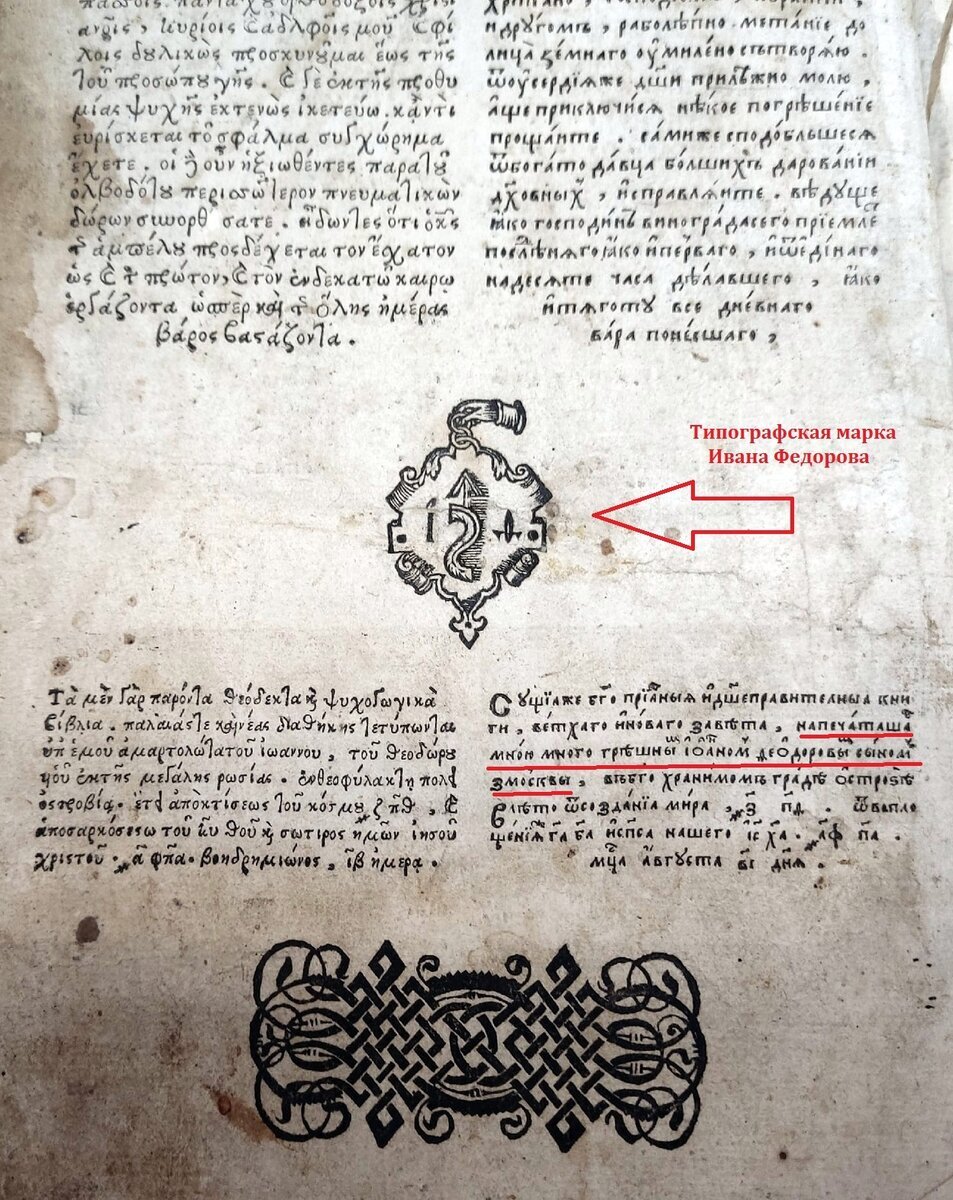 ἀνσις, κυρίοις ϗ ἀδλφοῖς μου ϗ φί
λοις δυλικῶς προσκυνȣμαι ἕως τῆς
τοῦ προσώπȣ γῆς. ϗ δὲ ἐκτῆς προθυ
μίας ψυχῆς ἐκτενῶς ἱκετεύω. κἄντι
εὑρίσκεται τὸ σφάλμα συγχώρημα
ἔχετε. οἱ γȣν ἠξιωθέντες παρατȣ
ὀλβοδότȣ περισσώτερον πνευματικῶν
δώρων διωορθώσατε. εἰδωντες ὅτι
ἀμπέλȣ προσδέχεται τον ἔχατον
ὡς ϗ τ πρώτον, ϗ τὸν ἑνδεκατω καιρω
ἐργάζοντα ὡσπερ καὶ τ ὅλης ἡμέρας
βάρος βασάζοντα.
и҆другомъ, раболѣпно метанїе до
лицаземнаго оумиленѡ сътворяю.
ѿоусердїяже дш҃и прилѣжно молю,
аще приключися нѣкое погрѣшенїе
прощаите. самиже сподобльшеся
ѿбогато давца болшихъ дарованїи
дх҃овныхъ, исправляите. вѣдуще
ꙗко господинъ виноградасего прїемле
послѣняго ꙗко иперваго, иѿединаго
надесяте часа дѣлавшаго, ꙗко
итяготу все дневнаго
вара понесшаго,
Типографская марка
Ивана Федорова
Τὰ μὲν γὰρ παρόντα θεόδεκτα ϗ ψυχοδωγικὰ
βίβλια. παλαιᾶς τε ϗ νέας διαθήκης τετύπωνται
ὑπ ἐμοῦ ἁμαρτολωτατου ιωαννου, τοῦ θεοδώρου
υἱοῦ ἐκτῆς μεγάλης ρωσίας. ἐνθεοφυλακτῃ πολϊ
οστροβία. ἔτϊ ἀποκτίσεως τοῦ κόσμȣ ͵ζπθ, ϗ
ἀποσαρκόσεως τοῦ κυ θοῦ ϗ σωτιρος ἡμῶν ἰησοῦ
χριστοῦ. ͵αφπα. βοηδρημιώνος, ιβ ἡμερα.
Сущїаже бг҃опрїатныя идшеправителныа кни
ги, ветхаго иноваго завѣта, напечаташася
мною многогрѣшны Іѡанном Ѳеодоровы сыном
змосквы, вбг҃охранимомъ градѣ Острозѣ
влѣто ѿсозданїа мира, ҂зпѳ. ѿвопло
щенїя га ба испса нашего іс ха ҂афпа.
мц҃а августа ві дня.